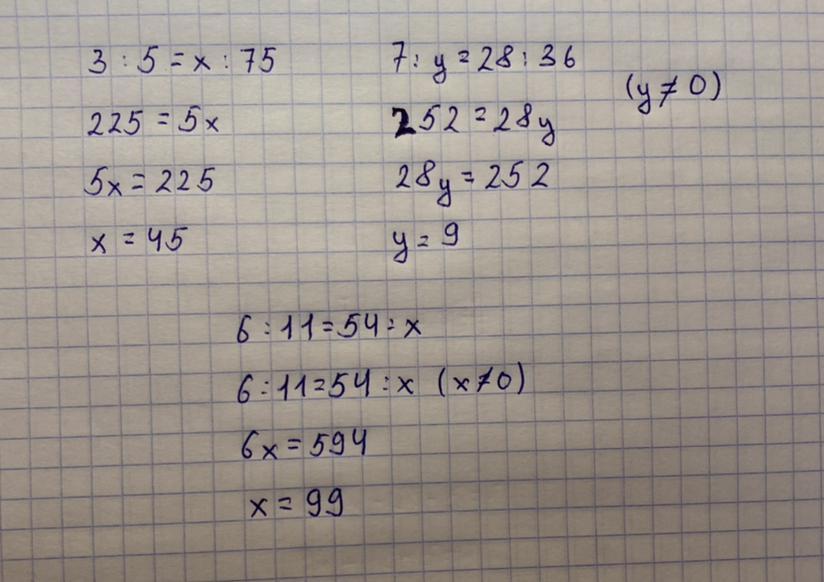 3 : 5 = x : 75
225 = 5x
5x = 225
x = 45
7 : y = 28 : 36
(y ≠ 0)
252 = 28y
28y = 252
y = 9
6 : 11 = 54 : x
6 : 11 = 54 : x (x ≠ 0)
6x = 594
x = 99